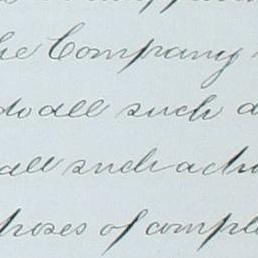 he Company
do all such a
all such acts
poses of comple